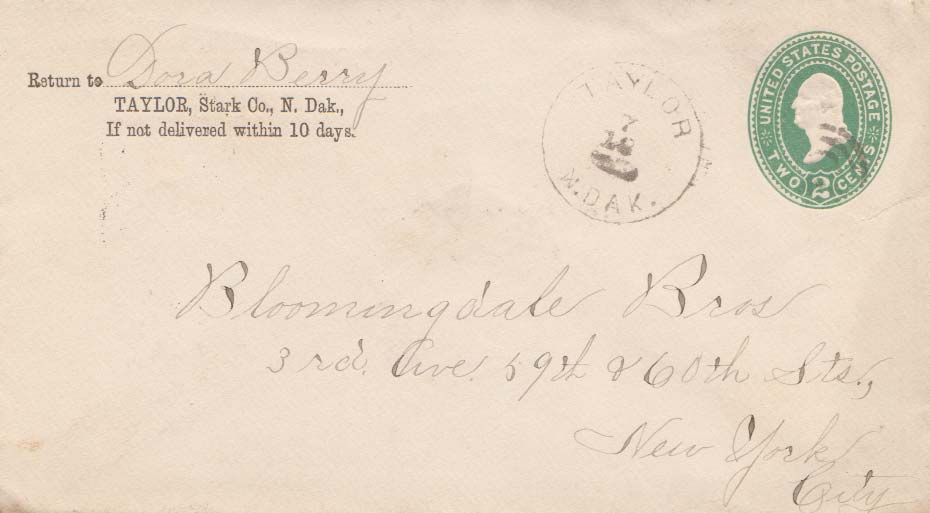 Return to Dora Berry
TAYLOR, Stark Co., N. Dak.,
If not delivered within 10 days.
TAYLOR
7
N. DAK.
UNITED STATES POSTAGE
TWO 2 CENTS
Bloomingdale Bros
3rd. Ave. 59th & 60th Sts.,
New York
City